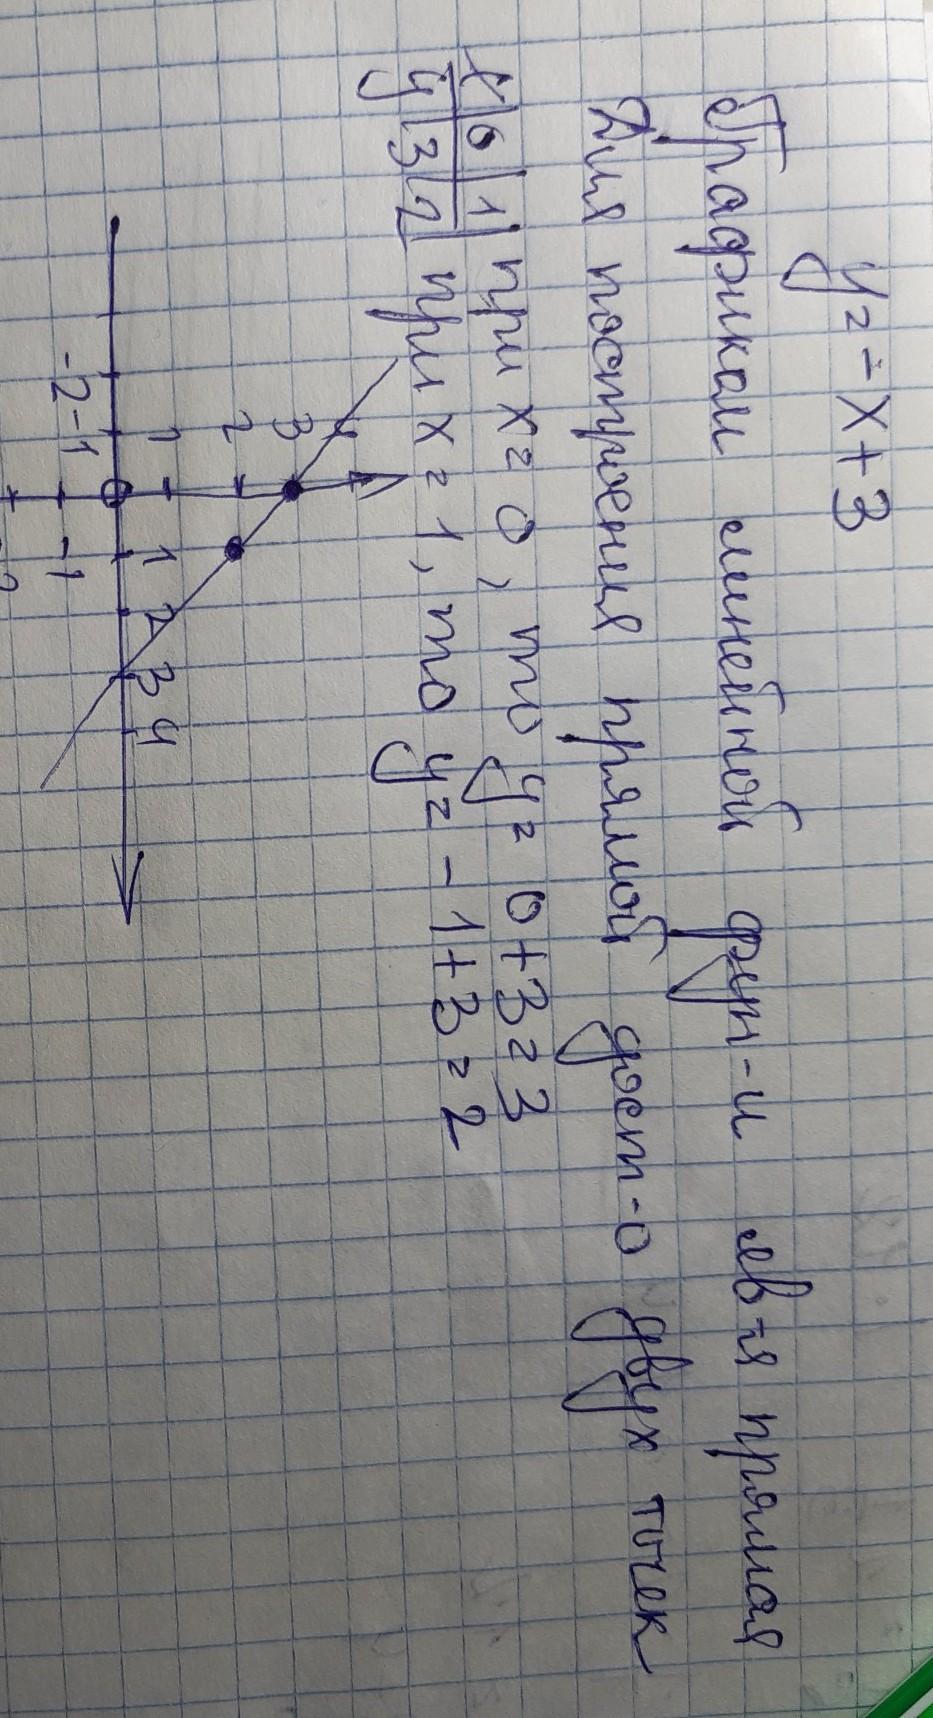 y = -x + 3
Графиком линейной фун-и яв-я прямая
Для построения прямой дост-о двух точек
x | 0 | 1 | при x = 0, то y = 0 + 3 = 3
y | 3 | 2 | при x = 1, то y = -1 + 3 = 2
4
3
2
1
-2 -1 0 1 2 3 4
-1